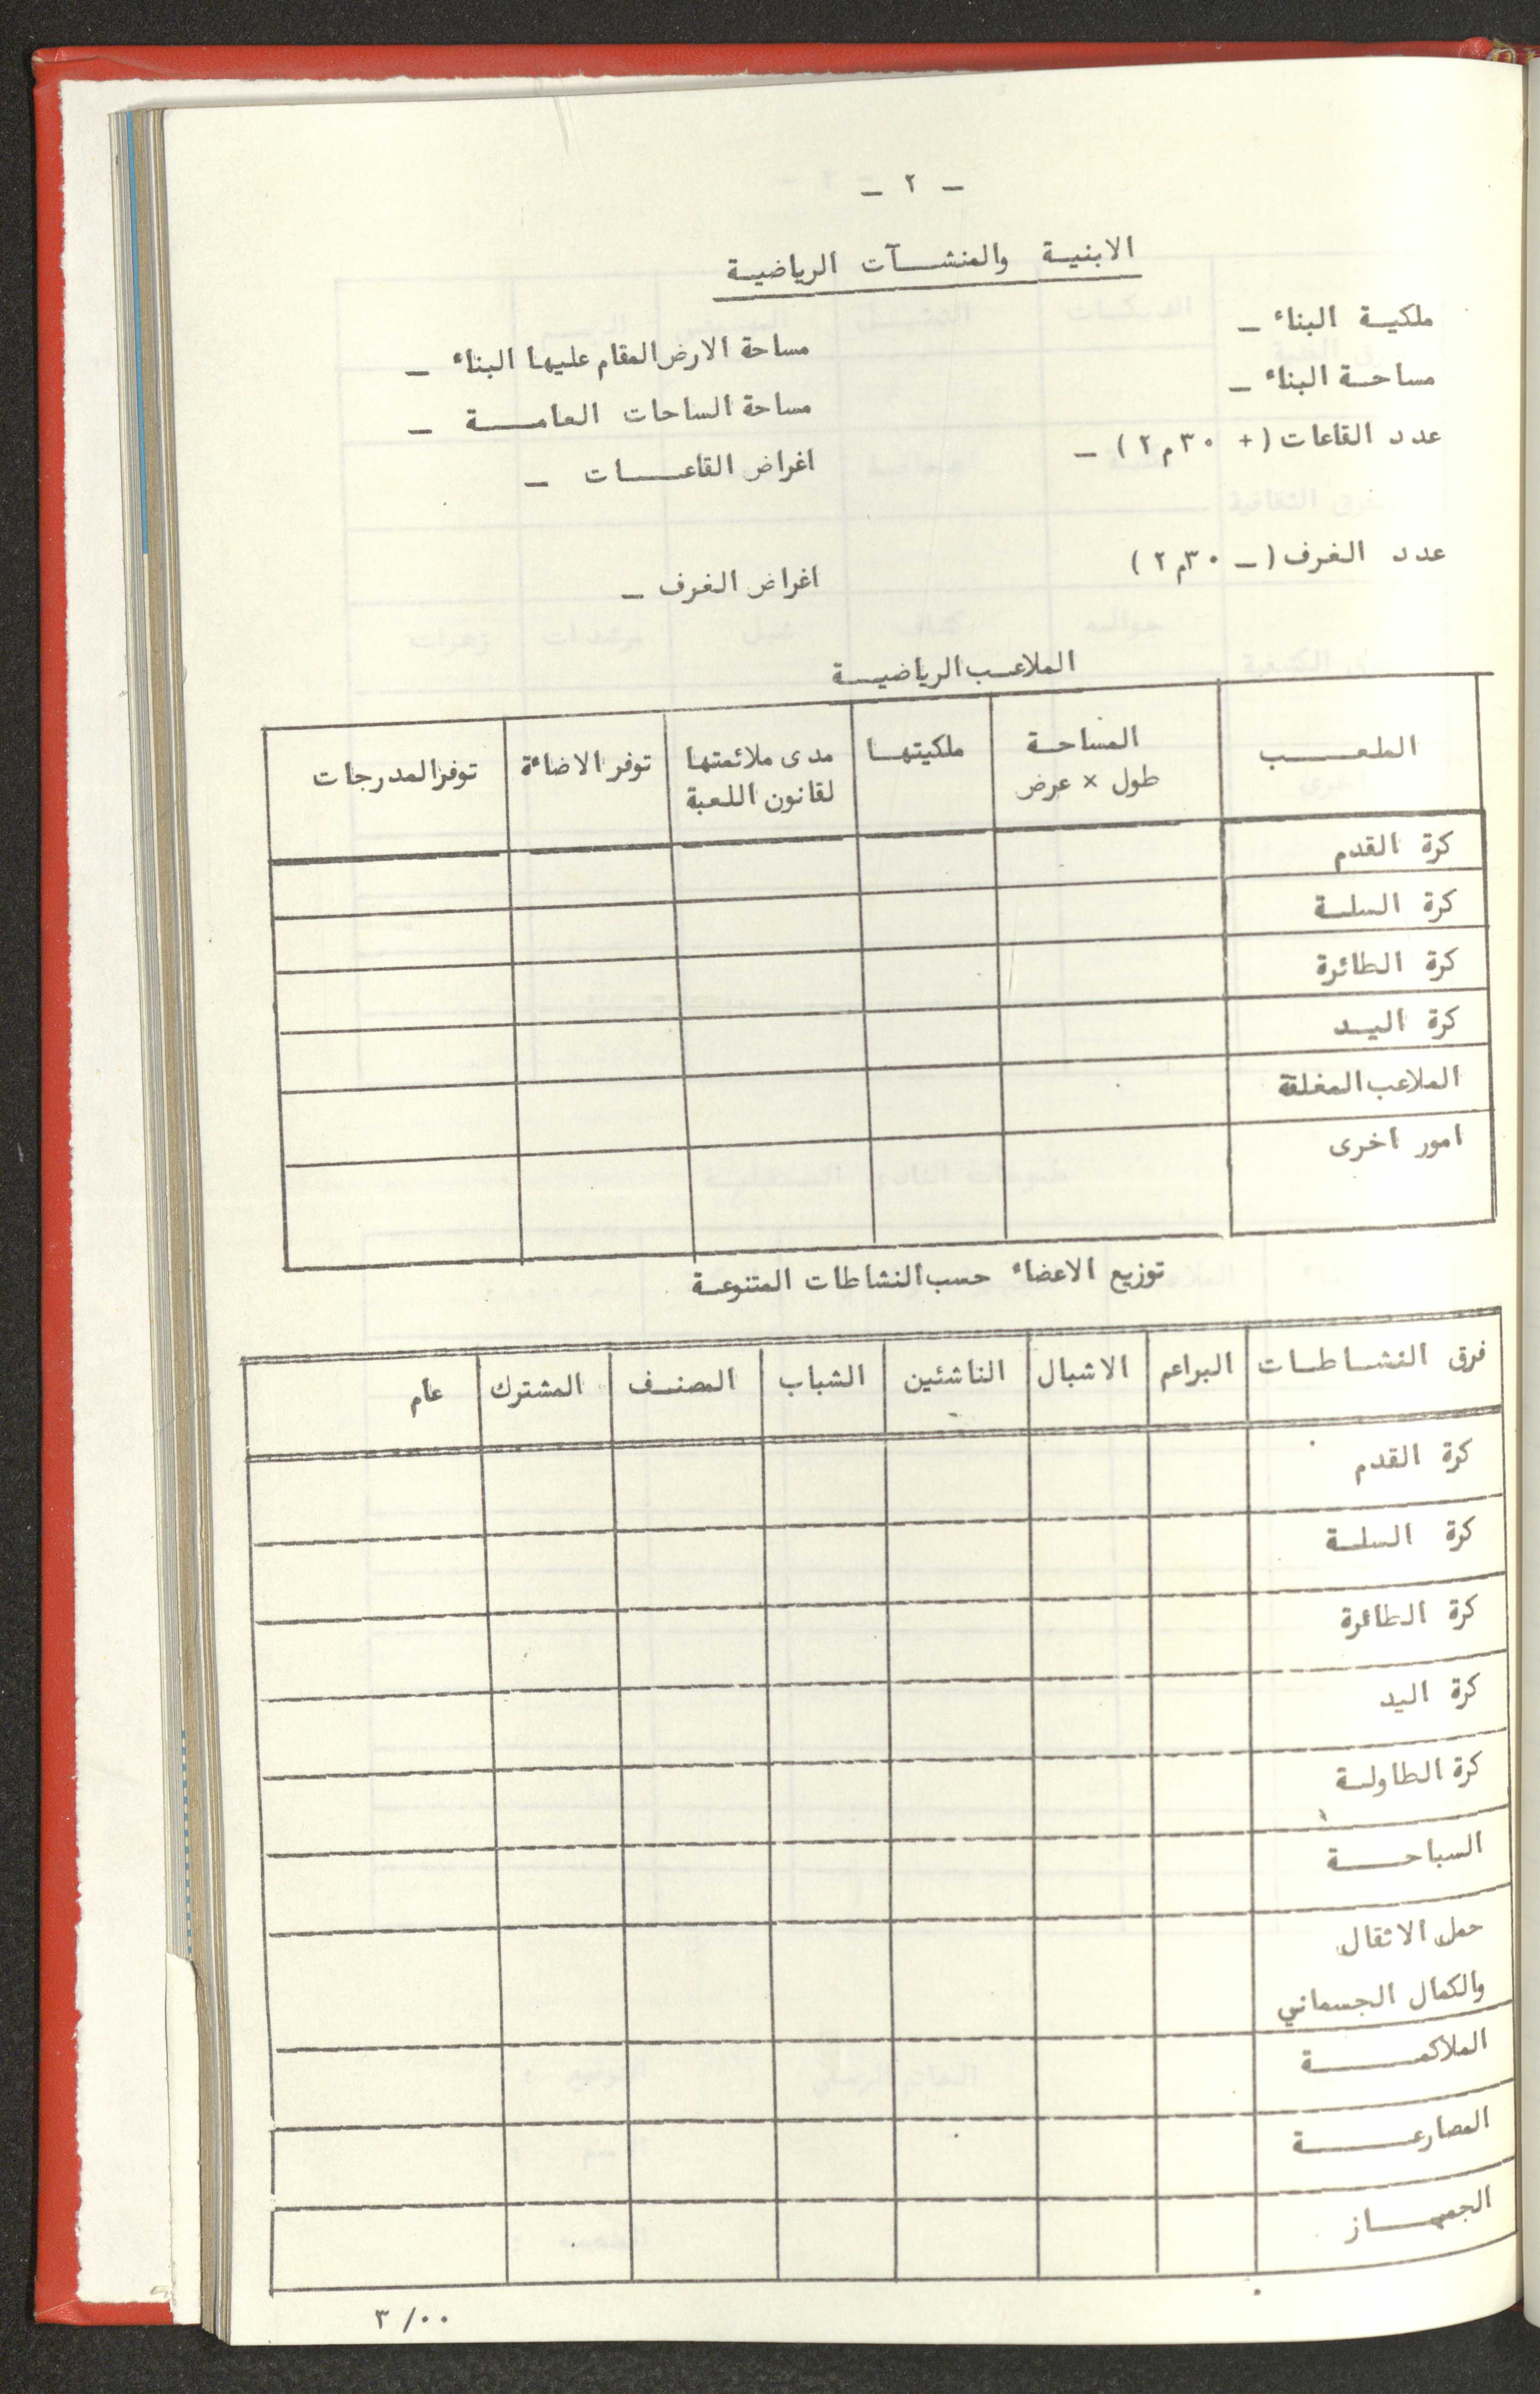 – ٢ –
الابنية والمنشآت الرياضية
ملكية البناء –
مساحة الارض المقام عليها البناء –
مساحة البناء –
مساحة الساحات العامة –
عدد القاعات ( + ٣٠ م ٢ ) –
اغراض القاعات –
عدد الغرف ( – ٣٠م ٢ )
اغراض الغرف –
الملاعب الرياضية
الملعب المساحة ملكيتها مدى ملائمتها توفر الاضاءة توفر المدرجات
طول × عرض لقانون اللعبة
كرة القدم
كرة السلة
كرة الطائرة
كرة اليد
الملاعب المغلقة
امور اخرى
توزيع الاعضاء حسب النشاطات المتنوعة
فرق النشاطات البراعم الاشبال الناشئين الشباب المصنف المشترك عام
كرة القدم
كرة السلة
كرة الطائرة
كرة اليد
كرة الطاولة
السباحة
حمل الاثقال
والكمال الجسماني
الملاكمة
المصارعة
الجمباز
٣ /٠٠